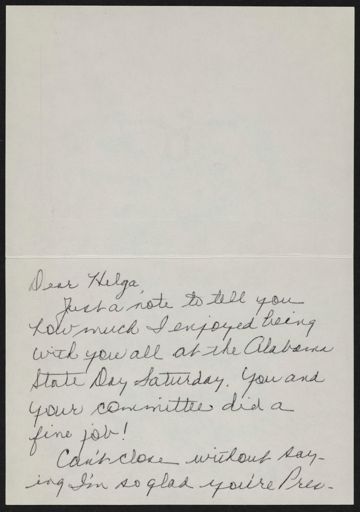 Dear Helga,
Just a note to tell you
how much I enjoyed being
with you all at the Alabama
State Day Saturday. You and
your committee did a
fine job!
Can't close without say-
ing I'm so glad you're Pres-